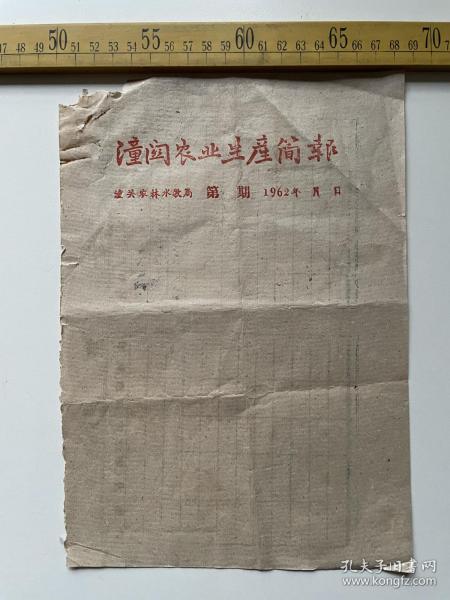 47 48 49 50 51 52 53 54 55 56 57 58 59 60 61 62 63 64 65 66 67 68 69 70
潼関农业生產简報
潼关农林水牧局 第 期 1962年 月 日
孔夫子旧书网
www.kongfz.com